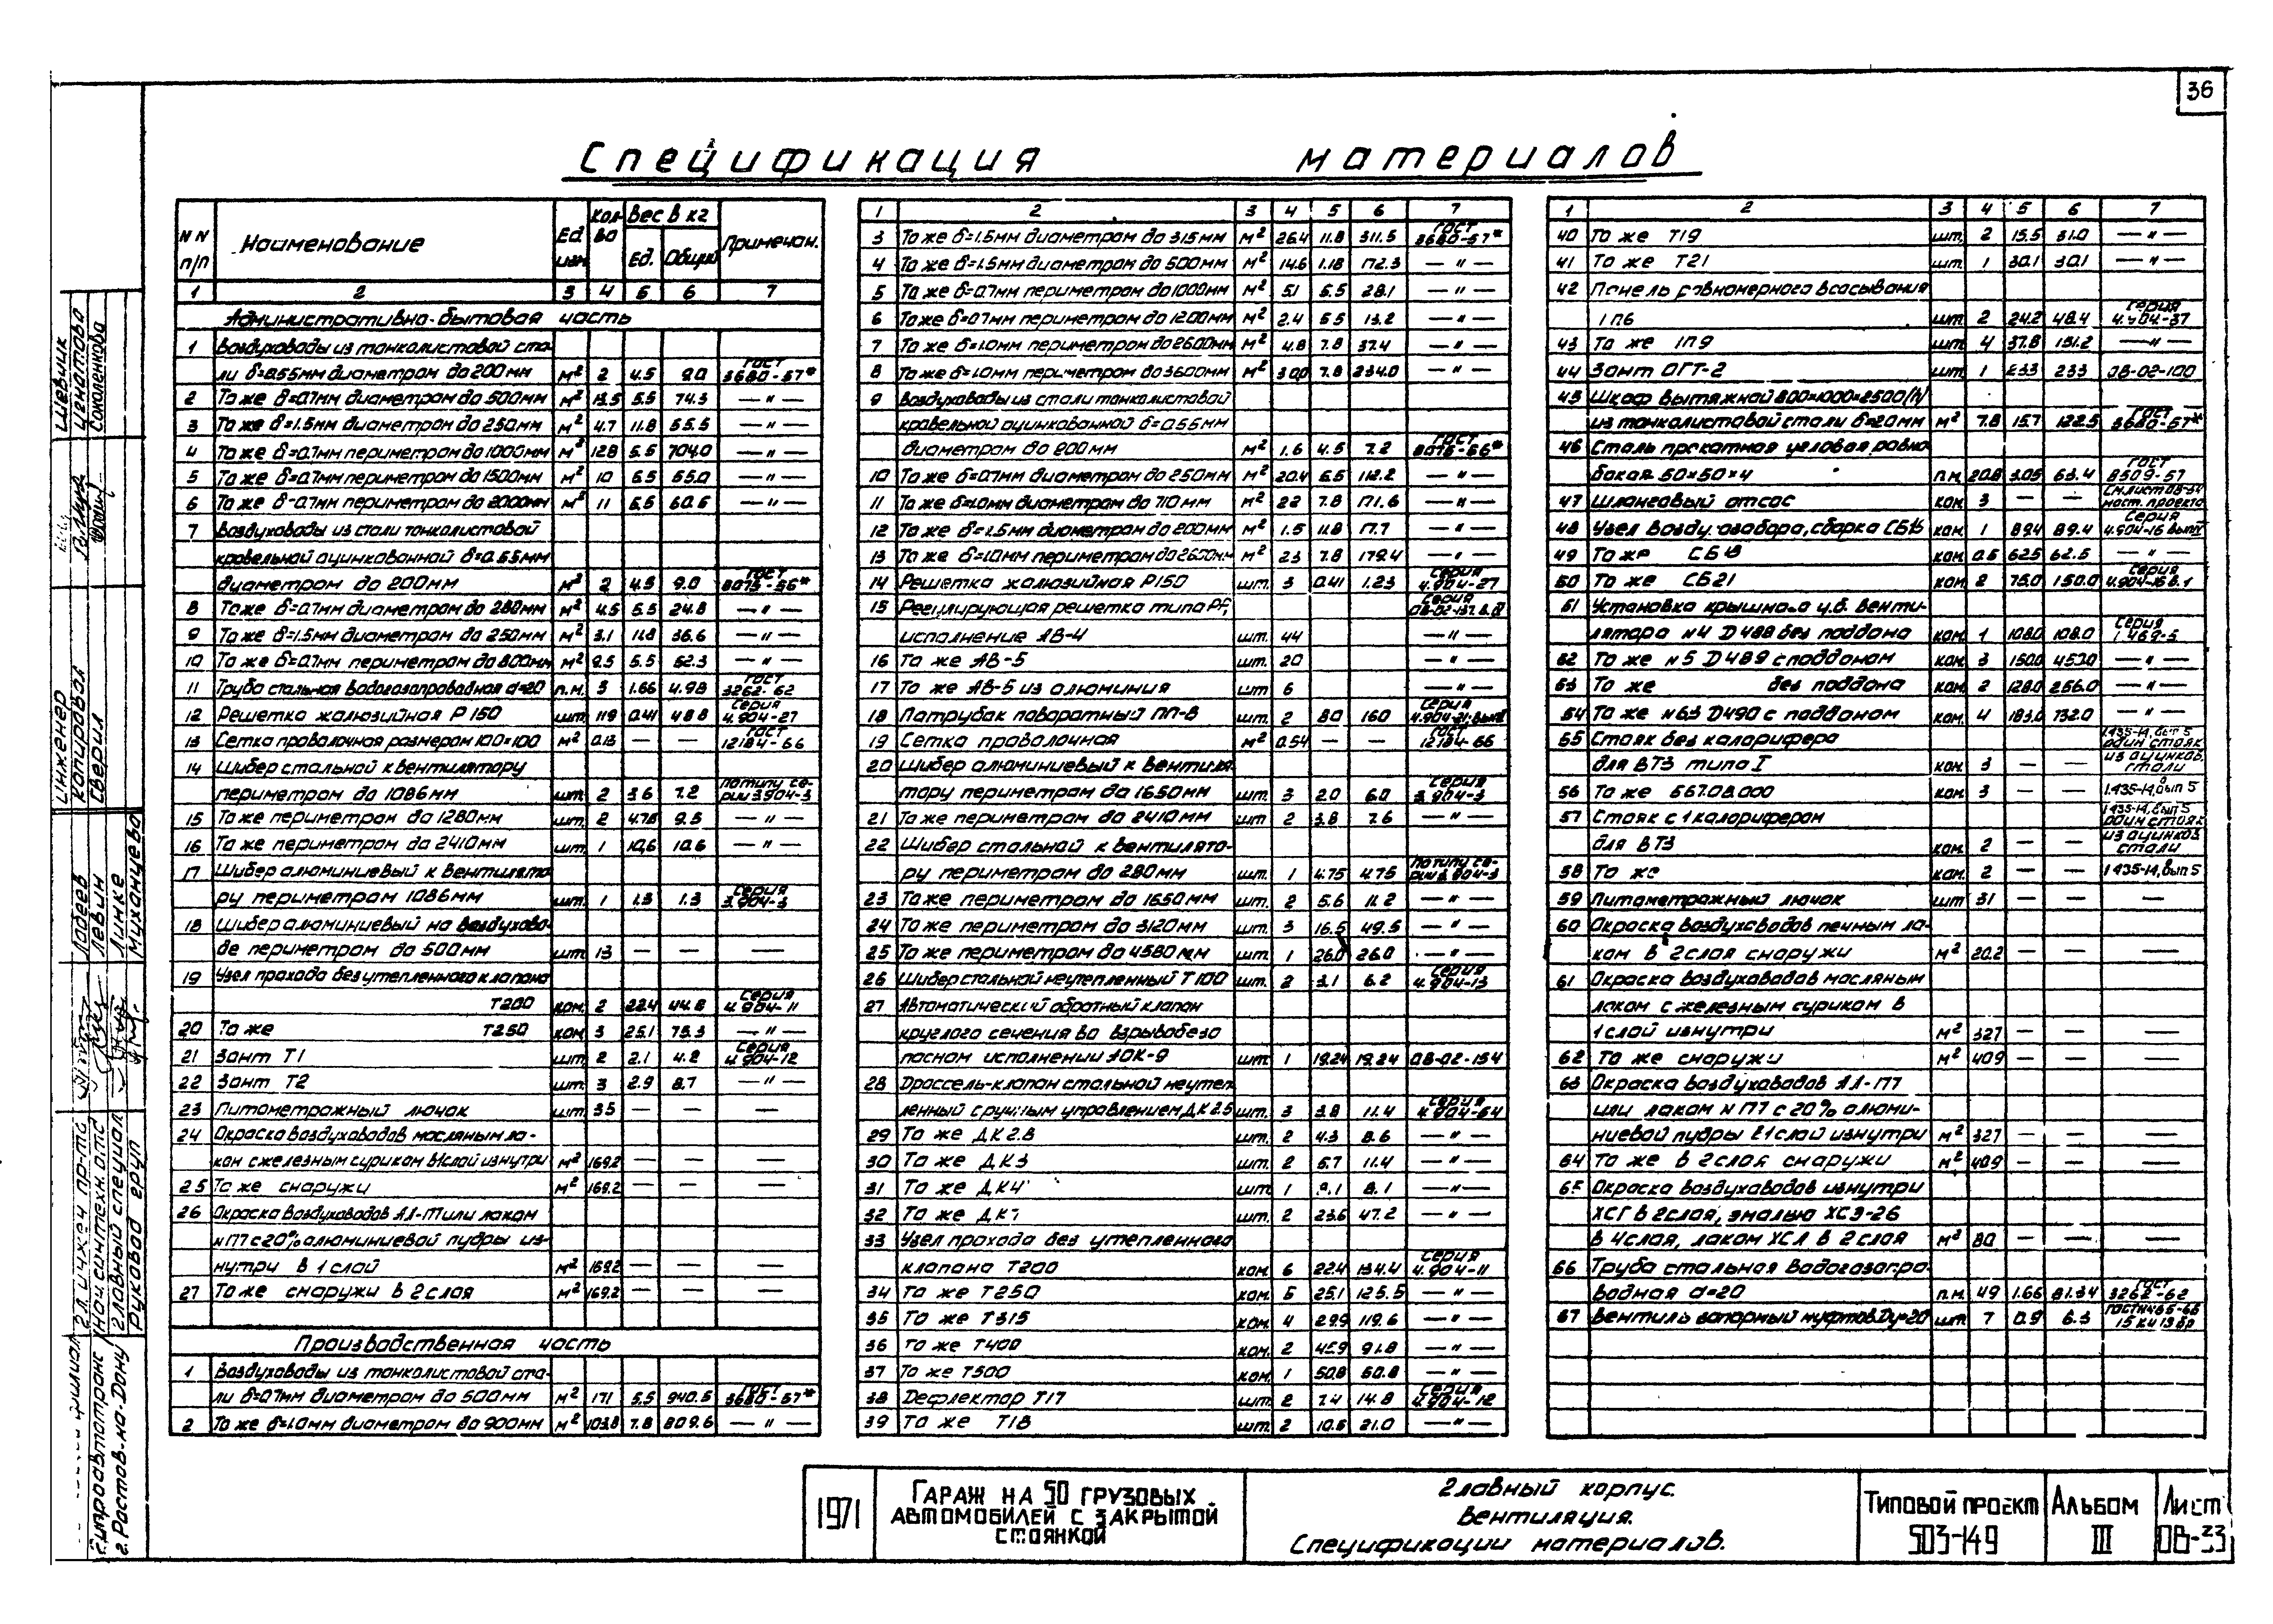 36
Спецификация материалов
NN п/п Наименование Ед. изм. Кол-во Вес в кг Ед. Общий Примечан.
1 2 3 4 5 6 7
Административно-бытовая часть
1 Воздуховоды из тонколистовой ста-
ли δ=0.55мм диаметром до 200мм м² 2 4.5 9.0 ГОСТ 3680-57*
2 То же δ=0.7мм диаметром до 500мм м² 13.5 5.5 74.3 — " —
3 То же δ=1.5мм диаметром до 250мм м² 4.7 11.8 55.5 — " —
4 То же δ=0.7мм периметром до 1000мм м² 128 5.5 704.0 — " —
5 То же δ=0.7мм периметром до 1500мм м² 10 5.5 55.0 — " —
6 То же δ=0.7мм периметром до 2000мм м² 11 5.5 60.5 — " —
7 Воздуховоды из стали тонколистовой
кровельной оцинкованной δ=0.55мм
диаметром до 200мм м² 2 4.5 9.0 ГОСТ 8075-56*
8 То же δ=0.7мм диаметром до 280мм м² 4.5 5.5 24.8 — " —
9 То же δ=1.5мм диаметром до 250мм м² 3.1 11.8 36.6 — " —
10 То же δ=0.7мм периметром до 800мм м² 9.5 5.5 52.3 — " —
11 Труба стальная водогазопроводная d=20 п.м. 3 1.66 4.98 ГОСТ 3262-62
12 Решетка жалюзийная Р150 шт. 119 0.41 48.8 Серия 4.904-27
13 Сетка проволочная размером 100×100 м² 0.13 ГОСТ 12184-66
14 Шибер стальной к вентилятору
периметром до 1086мм шт. 2 3.6 7.2 по типу се-рии 3.904-3
15 То же периметром до 1280мм шт. 2 4.75 9.5 — " —
16 То же периметром до 2410мм шт. 1 10.6 10.6 — " —
17 Шибер алюминиевый к вентилято-
ру периметром 1086мм шт. 1 1.3 1.3 Серия 3.904-3
18 Шибер алюминиевый на воздухово-
де периметром до 500мм шт. 13 — — —
19 Узел прохода без утепленного клапана
Т200 ком. 2 22.4 44.8 Серия 4.904-11
20 То же Т250 ком. 3 25.1 75.3 — " —
21 Зонт Т1 шт. 2 2.1 4.2 Серия 4.904-12
22 Зонт Т2 шт. 3 2.9 8.7 — " —
23 Питометражный лючок шт. 35 — — —
24 Окраска воздуховодов масляным ла-
ком с железным суриком в 1 слой изнутри м² 169.2 — — —
25 То же снаружи м² 169.2 — — —
26 Окраска воздуховодов АЛ-177 или лаком
N177 с 20% алюминиевой пудры из-
нутри в 1 слой м² 169.2 — — —
27 То же снаружи в 2 слоя м² 169.2 — — —
Производственная часть
1 Воздуховоды из тонколистовой ста-
ли δ=0.7мм диаметром до 500мм м² 171 5.5 940.5 ГОСТ 3680-57*
2 То же δ=1.0мм диаметром до 900мм м² 103.8 7.8 809.6 — " —
1 2 3 4 5 6 7
3 То же δ=1.5мм диаметром до 315мм м² 26.4 11.8 311.5 ГОСТ 3680-57*
4 То же δ=1.5мм диаметром до 500мм м² 14.6 1.18 172.3 — " —
5 То же δ=0.7мм периметром до 1000мм м² 5.1 5.5 28.1 — " —
6 То же δ=0.7мм периметром до 1200мм м² 2.4 5.5 13.2 — " —
7 То же δ=1.0мм периметром до 2600мм м² 4.8 7.8 37.4 — " —
8 То же δ=1.0мм периметром до 3600мм м² 30.0 7.8 234.0 — " —
9 Воздуховоды из стали тонколистовой
кровельной оцинкованной δ=0.55мм
диаметром до 200мм м² 1.6 4.5 7.2 ГОСТ 8075-56*
10 То же δ=0.7мм диаметром до 250мм м² 20.4 5.5 112.2 — " —
11 То же δ=1.0мм диаметром до 710мм м² 22 7.8 171.6 — " —
12 То же δ=1.5мм диаметром до 200мм м² 1.5 11.8 17.7 — " —
13 То же δ=1.0мм периметром до 2600мм м² 23 7.8 179.4 — " —
14 Решетка жалюзийная Р150 шт. 3 0.41 1.23 Серия 4.904-27
15 Регулирующая решетка типа РР, Серия
исполнение АВ-4 шт. 44 — " —
16 То же АВ-5 шт. 20 — " —
17 То же АВ-5 из алюминия шт 6 — " —
18 Патрубок поворотный ПП-8 шт. 2 80 160 Серия
19 Сетка проволочная м² 0.54 — — ГОСТ 12184-66
20 Шибер алюминиевый к вентиля-
тору периметром до 1650мм шт. 3 2.0 6.0 Серия 3.904-3
21 То же периметром до 2410мм шт 2 3.8 7.6 — " —
22 Шибер стальной к вентилято-
ру периметром до 280мм шт. 1 4.75 4.75 по типу се-рии 3.904-3
23 То же периметром до 1650мм шт. 2 5.6 11.2 — " —
24 То же периметром до 3120мм шт. 3 16.5 49.5 — " —
25 То же периметром до 4580мм шт. 1 26.0 26.0 — " —
26 Шибер стальной неутепленный Т100 шт. 2 3.1 6.2 Серия 4.904-13
27 Автоматический обратный клапан
круглого сечения во взрывобезо
пасном исполнении АОК-9 шт. 1 19.24 19.24 ОВ-02-154
28 Дроссель-клапан стальной неутеп
ленный с ручным управлением ДК2.5 шт. 3 3.8 11.4 Серия 4.904-64
29 То же ДК2.8 шт. 2 4.3 8.6 — " —
30 То же ДК3 шт. 2 5.7 11.4 — " —
31 То же ДК4 шт. 1 8.1 — " —
32 То же ДК7 шт. 2 23.6 47.2 — " —
33 Узел прохода без утепленного
клапана Т200 ком. 6 22.4 134.4 Серия 4.904-11
34 То же Т250 ком. 5 25.1 125.5 — " —
35 То же Т315 ком. 4 29.9 119.6 — " —
36 То же Т400 ком. 2 45.9 91.8 — " —
37 То же Т500 ком. 1 50.8 50.8 — " —
38 Дефлектор Т17 шт. 2 7.4 14.8 Серия 4.904-12
39 То же Т18 шт. 2 10.5 21.0 — " —
1 2 3 4 5 6 7
40 То же Т19 шт. 2 15.5 31.0 — " —
41 То же Т21 шт. 1 30.1 30.1 — " —
42 Панель равномерного всасывания
1П6 шт. 2 24.2 48.4 Серия 4.904-37
43 То же 1П9 шт 4 37.8 151.2 — " —
44 Зонт ОГТ-2 шт. 1 233 233 ОВ-02-100
45 Шкаф вытяжной 800×1000×2500(h)
из тонколистовой стали δ=2.0мм м² 7.8 15.7 122.5 ГОСТ 3680-57*
46 Сталь прокатная угловая равно
бокая 50×50×4 п.м. 20.8 3.05 63.4 ГОСТ 8509-57
47 Шланговый отсос ком. 3 — — См. лист ОВ-34 наст. проекта
48 Узел воздухозабора, сборка СБ15 ком. 1 89.4 89.4 Серия
49 То же СБ18 ком. 62.5 62.5 — " —
50 То же СБ21 ком. 2 75.0 150.0 Серия 4.904-16 в.1
51 Установка крышного ц.б. венти-
лятора N4 D488 без поддона ком. 1 108.0 108.0 Серия 1.469-5
52 То же N5 D489 с поддоном ком. 3 150.0 450.0 — " —
53 То же без поддона ком. 2 128.0 256.0 — " —
54 То же N6.3 D490 с поддоном ком. 4 183.0 732.0 — " —
55 Стояк без калорифера 1.435-14, вып 5 один стояк
для ВТЗ типа I ком. 3 — — из оцинков. стали
56 То же Б67.08.000 ком. 3 1.435-14, вып 5
57 Стояк с 1 калорифером 1.435-14, вып 5 один стояк
для ВТЗ ком. 2 — — из оцинков стали
58 То же ком. 2 — — 1.435-14, вып 5
59 Питометражный лючок шт 31 — — —
60 Окраска воздуховодов печным ла-
ком в 2 слоя снаружи м² 20.2 — — —
61 Окраска воздуховодов масляным
лаком с железным суриком в
1 слой изнутри м² 327 — — —
62 То же снаружи м² 409 — — —
63 Окраска воздуховодов АЛ-177
или лаком N177 с 20% алюми-
ниевой пудры в 1 слой изнутри м² 327 — — —
64 То же в 2 слоя снаружи м² 409 — — —
65 Окраска воздуховодов изнутри
ХСГ в 2 слоя, эмалью ХСЭ-26
в 4 слоя, лаком ХСЛ в 2 слоя м² 80 — — —
66 Труба стальная водогазопро
водная d=20 п.м. 49 1.66 81.34 ГОСТ 3262-62
67 Вентиль запорный муфтов. Dу=20 шт 7 0.9 6.3 15 кч 18 бр
1971
Гараж на 50 грузовых
автомобилей с закрытой
стоянкой
Главный корпус.
Вентиляция.
Спецификации материалов.
Типовой проект
503-149
Альбом
III
Лист
ОВ-33
Гипроавтотранс
г. Ростов-на-Дону
Гл. инжен. пр-та Лобеев
Нач. сантехн. отд Левин
Главный специал Линке
Руковод. груп Муханцева
Инженер Шевчик
Копировал Игнатова
Сверил Соколенкова